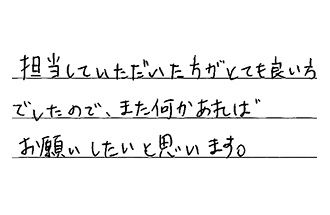 担当していただいた方がとても良い方
でしたので、また何かあれば
お願いしたいと思います。